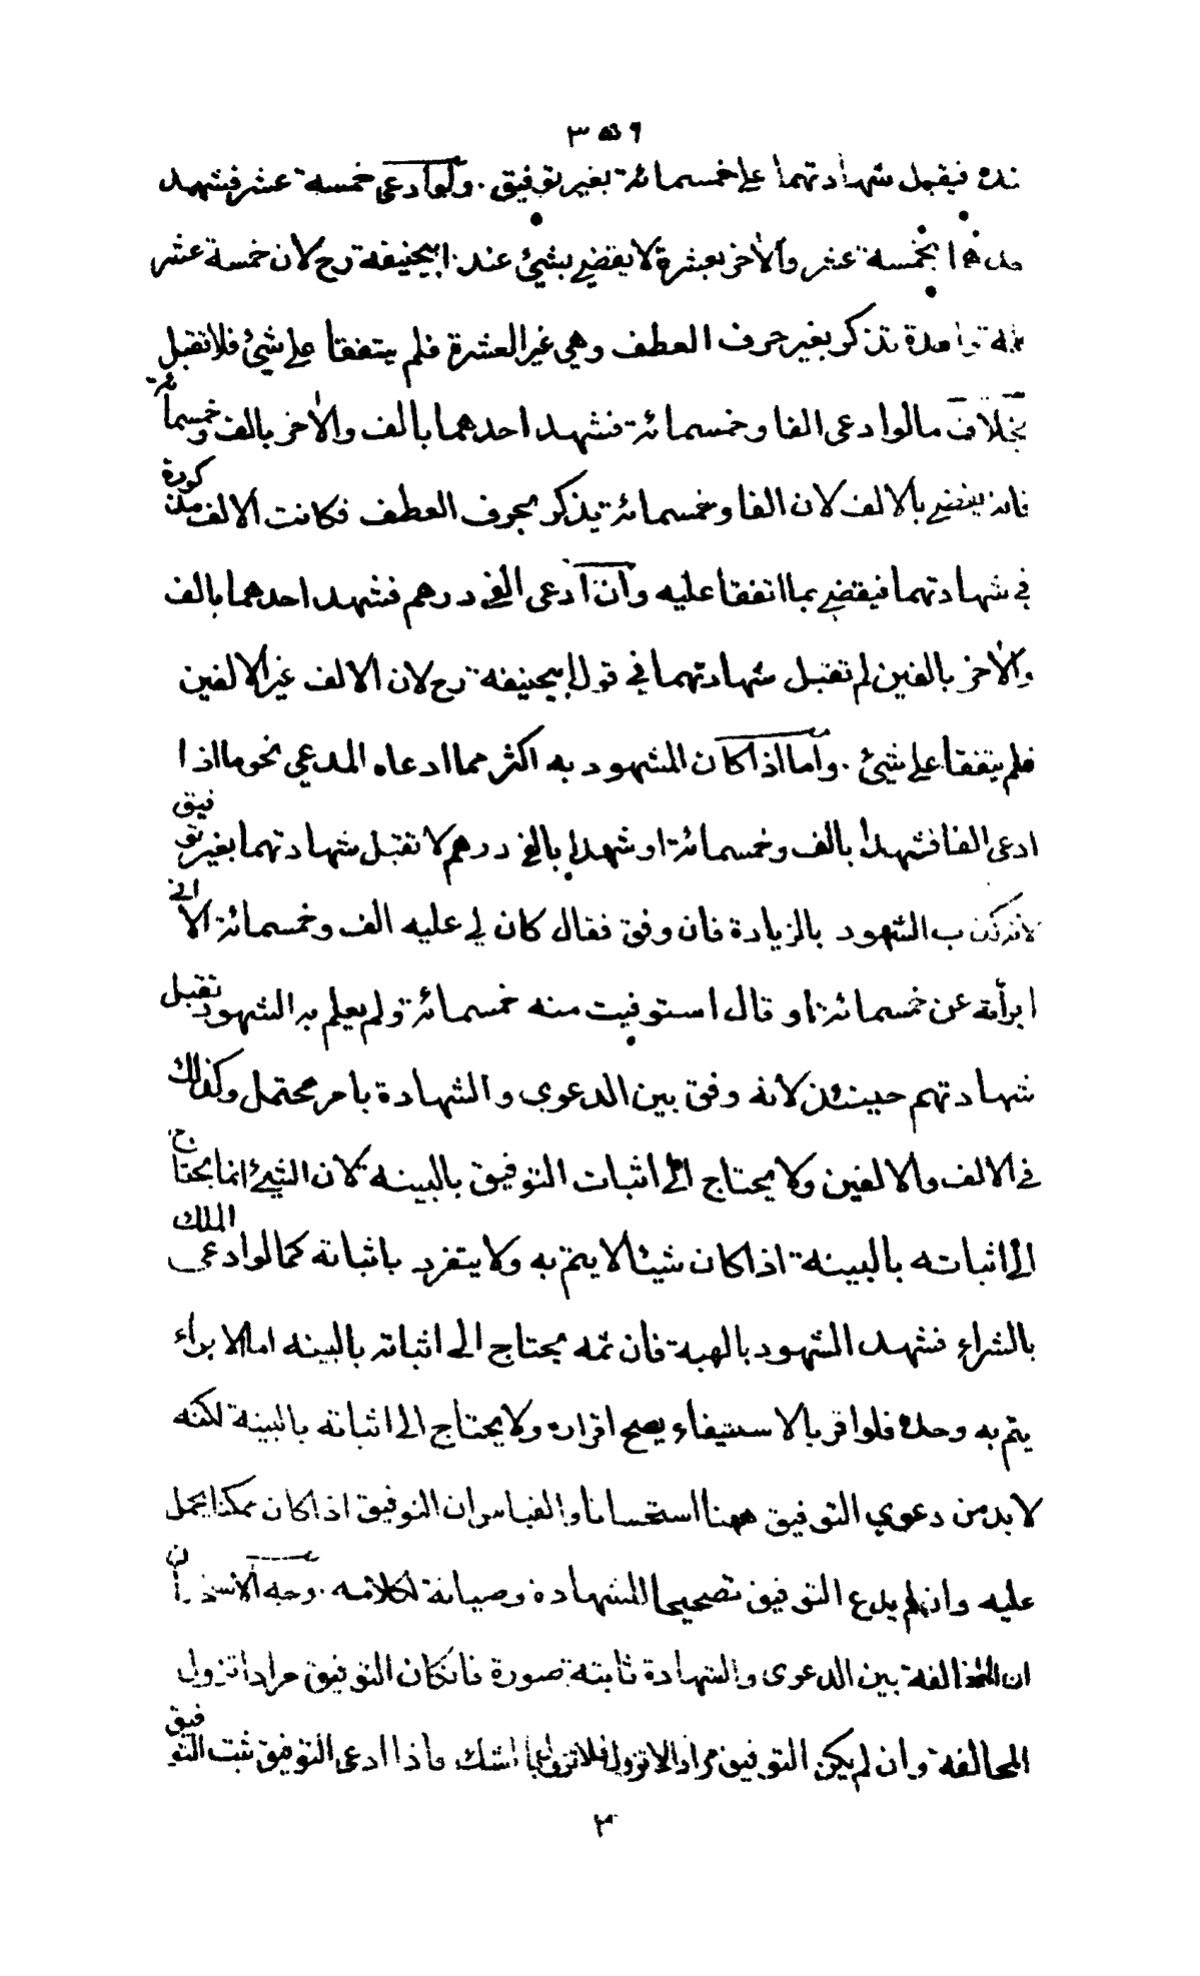 ٣٥٦
فيقبل شهادتهما على خمسمائة بغير توفيق . ولو ادعى خمسة عشر فشهد
بخمسة عشر والآخر بعشرة لا يقضي بشئ عند ابيحنيفة رح لان خمسة عشر
تذكر بغير حرف العطف وهي غير العشرة فلم يتفقا على شئ فلا تقبل
بخلاف مالو ادعى الفا وخمسمائة فشهد احدهما بالف والآخر بالف وخمسمائة
فانه يقضي بالالف لان الفا وخمسمائة يذكر بحرف العطف فكانت الالف مذكورة
في شهادتهما فيقضي بما اتفقا عليه وان ادعى الفي درهم فشهد احدهما بالف
والآخر بالفين لم تقبل شهادتهما في قول ابيحنيفة رح لان الالف غير الالفين
فلم يتفقا على شئ . واما اذا كان المشهود به اكثر مما ادعاه المدعي نحو ما اذا
ادعى الفا فشهدا بالف وخمسمائة او شهدا بالفي درهم لا تقبل شهادتهما بغير توفيق
لانه كذب الشهود بالزيادة فان وفق فقال كان لي عليه الف وخمسمائة الا اني
ابرأته عن خمسمائة او قال استوفيت منه خمسمائة ولم يعلم به الشهود تقبل
شهادتهم حينئذ لانه وفق بين الدعوي والشهادة بامر محتمل وكذلك
في الالف والالفين ولا يحتاج الى اثبات التوفيق بالبينة لان الشئ انما يحتاج
الى اثباته بالبينة اذا كان شيئا لا يتم به ولا يتفرد باثباته كما لو ادعى الملك
بالشراء فشهد الشهود بالهبة فان ثمه يحتاج الى اثباته بالبينه اما الابراء
يتم به وحده فلو اقر بالاستيفاء يصح اقراره ولا يحتاج الى اثباته بالبينة لكنه
لا بد من دعوي التوفيق ههنا استحسانا والقياس ان التوفيق اذا كان ممكنا يحمل
عليه وان لم يدع التوفيق تصحيحا للشهادة وصيانة لكلامه . وجه الاستحسان
ان المخالفة بين الدعوى والشهادة ثابتة صورة فان كان التوفيق مرادا تزول
المخالفة وان لم يكن التوفيق مرادا لا تزول فلا تزول بالشك فاذا ادعى التوفيق ثبت التوفيق